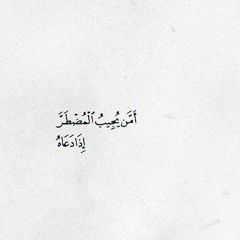 أَمَّن يُجِيبُ ٱلْمُضْطَرَّ
إِذَا دَعَاهُ